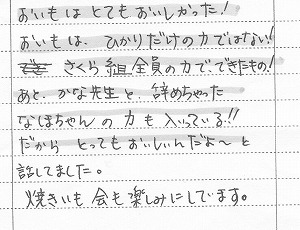 おいもは とてもおいしかった!
おいもは、ひかりだけの力ではない!!
さくら組全員の力でできたもの!
あと、かな先生と、辞めちゃった
なほちゃんの力も入っている!!
だから とってもおいしいんだよ〜と
話してました。
焼きいも会も楽しみにしでいます。